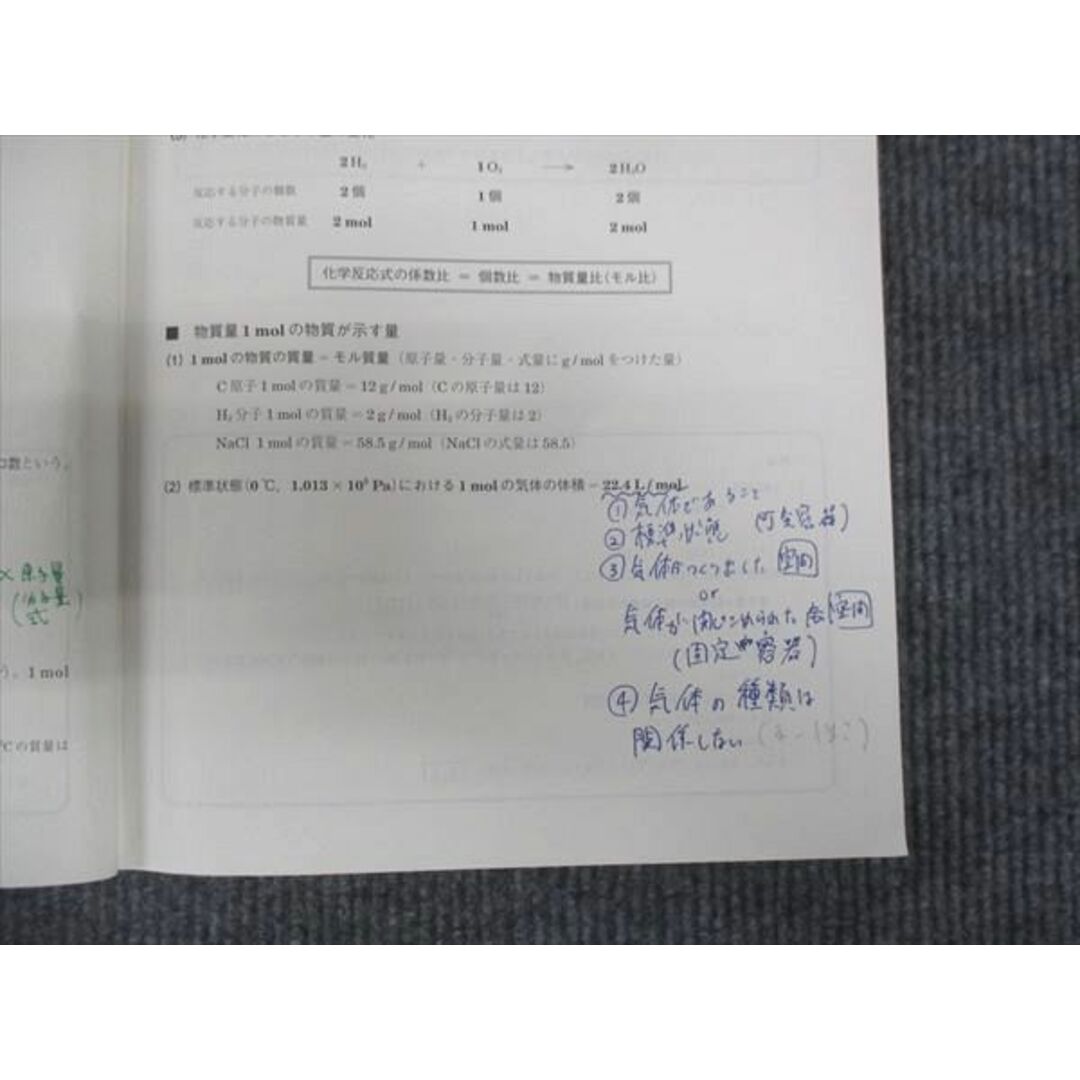 2H₂ + 1O₂ → 2H₂O
反応する分子の個数 2個 1個 2個
反応する分子の物質量 2 mol 1 mol 2 mol
化学反応式の係数比 = 個数比 = 物質量比(モル比)
■ 物質量1 molの物質が示す量
(1) 1 molの物質の質量=モル質量 (原子量・分子量・式量にg/molをつけた量)
C原子1 molの質量=12 g/mol (Cの原子量は12)
H₂分子1 molの質量=2 g/mol (H₂の分子量は2)
NaCl 1 molの質量=58.5 g/mol (NaClの式量は58.5)
(2) 標準状態(0 ℃, 1.013 × 10⁵ Pa)における1 molの気体の体積=22.4 L/mol
①気体であること
②標準状態
③気体がつくりました 空間
or
気体が閉じこめられた 空間
(固定容器)
④気体の種類は
関係しない
数という。
×原子量
(分子量)
式
う。1 mol
℃の質量は